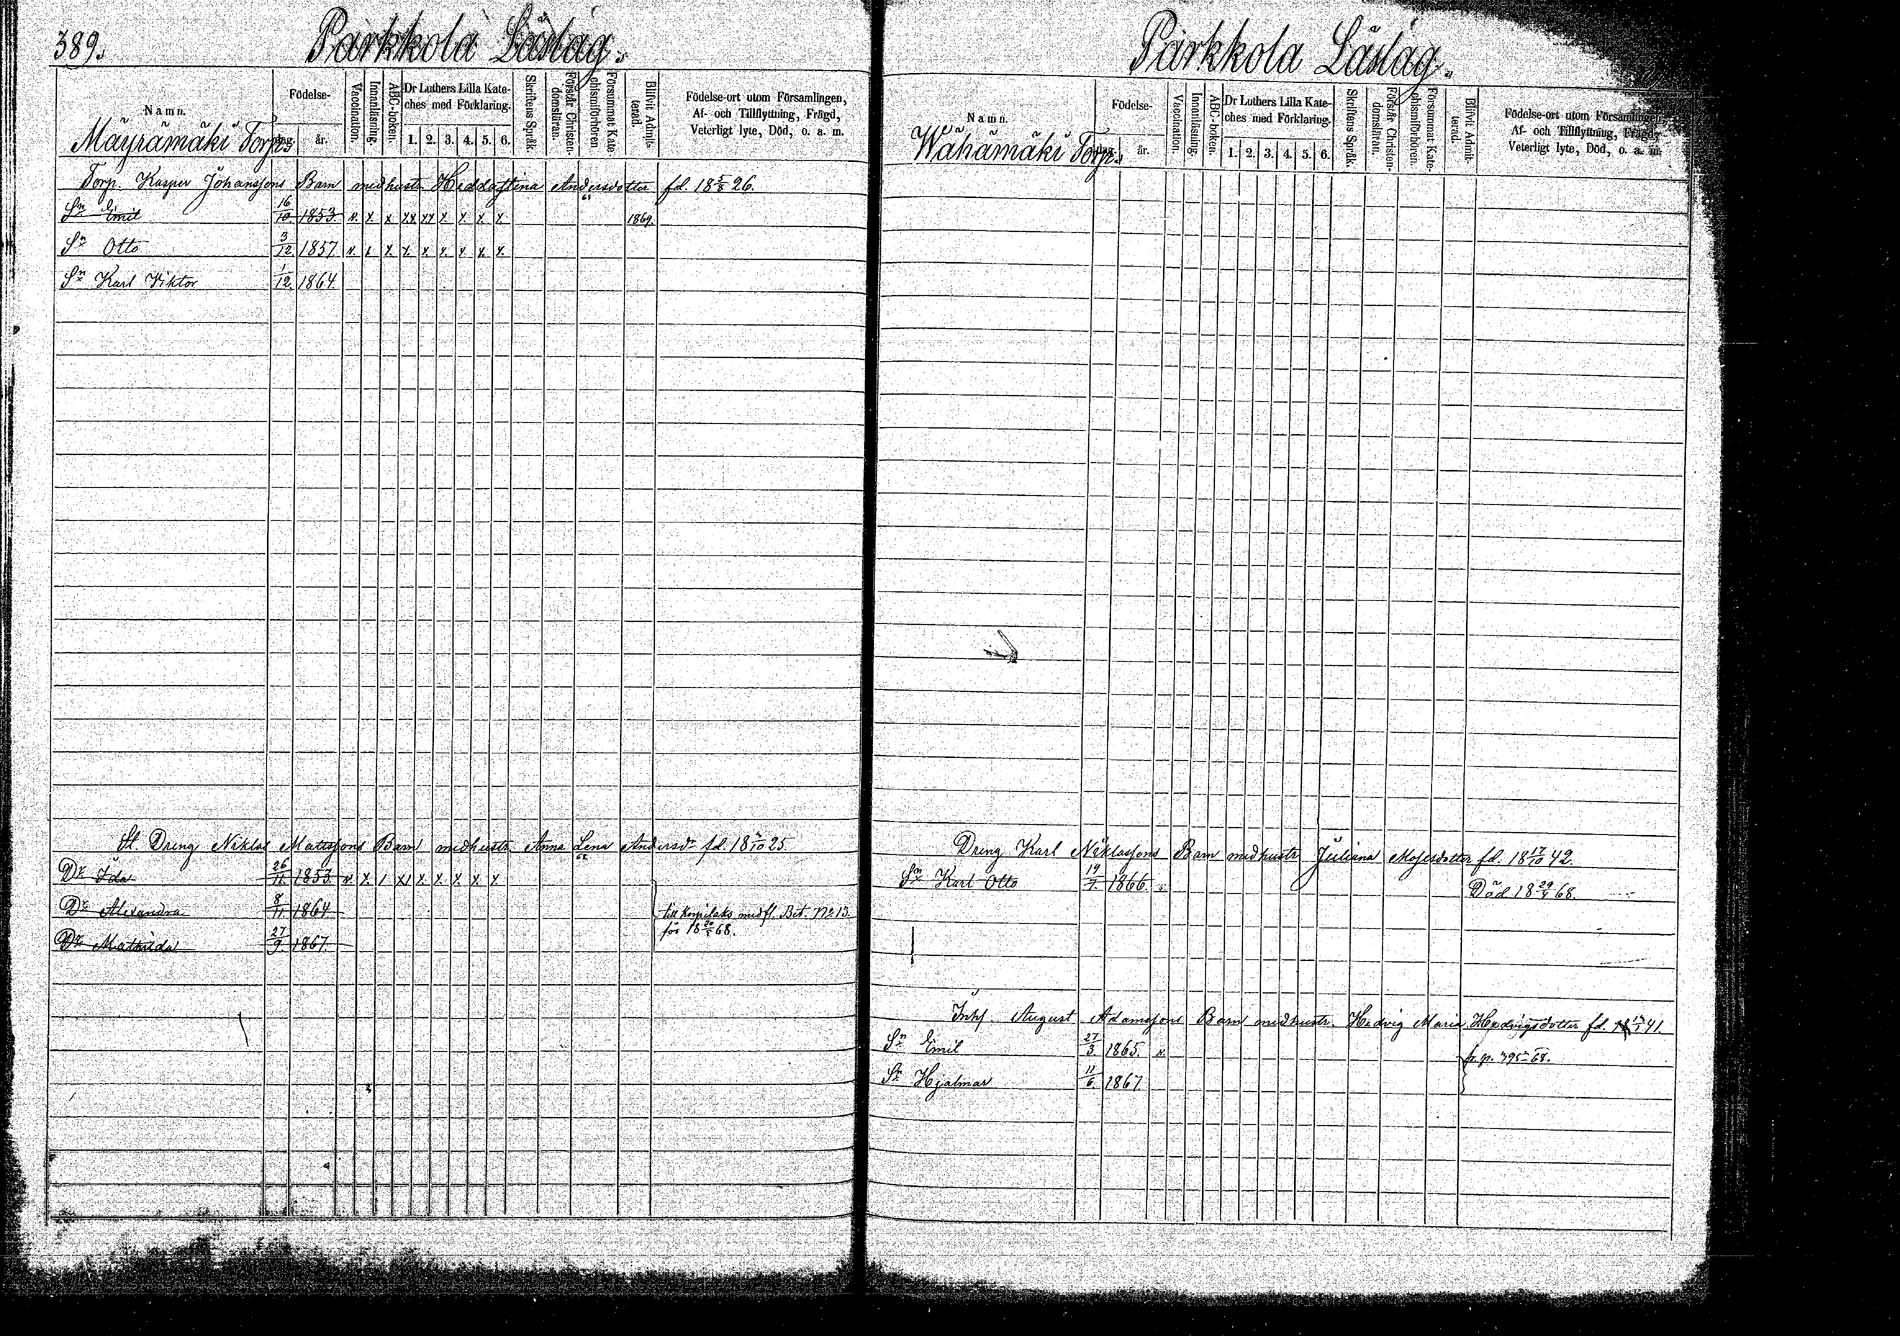 389.
Pärkkola Läslag.
Namn.
Födelse-
dag. år.
Vaccination.
Innanläsning.
ABC-boken.
Dr Luthers Lilla Kate-
ches med Förklaring.
1. 2. 3. 4. 5. 6.
Skriftens Språk.
Förstår Christen-
domsläran.
Försummat Kate-
chismiförhören
Blifvit Admit-
terad.
Födelse-ort utom Församlingen,
Af- och Tillflyttning, Frägd,
Veterligt lyte, Död, o. a. m.
Mäyrämäki Torp.
Torp. Kasper Johanssons Barn med hustr. Hedda Stina Andersdotter fd. 18 5/8 26.
Sn Emil 16/10 1853. 1869.
Sn Otto 3/12 1857
Sn Karl Viktor 1/12 1864.
St. Dreng Niklas Matssons Barn med hustr. Anna Lena Andersdr fd. 18 /10 25.
Dr Ida 26/11 1853.
Dr Alexandra 8/11 1864
till Korpilaks med fl. Bet. No 13.
för 18 68.
Dr Mathilda 27/9 1867.
Pärkkola Läslag.
Namn.
Födelse-
dag. år.
Vaccination.
Innanläsning.
ABC-boken.
Dr Luthers Lilla Kate-
ches med Förklaring.
1. 2. 3. 4. 5. 6.
Skriftens Språk.
Förstår Christen-
domsläran.
Försummat Kate-
chismiförhören.
Blifvit Admit-
terad.
Födelse-ort utom Församlingen,
Af- och Tillflyttning, Frägd,
Veterligt lyte, Död, o. a. m.
Wähämäki Torp.
Dreng Karl Niklassons Barn med hustr. Juliana Mosesdotter fd. 18 17/10 42.
Sn Karl Otto 19/7 1866. Död 18 68.
Inhs. August Adamssons Barn med hustr. Hedvig Maria Hedvigsdotter fd. 41
Sn Emil 27/3 1865. p. 395 68.
Sn Hjalmar 11/6 1867